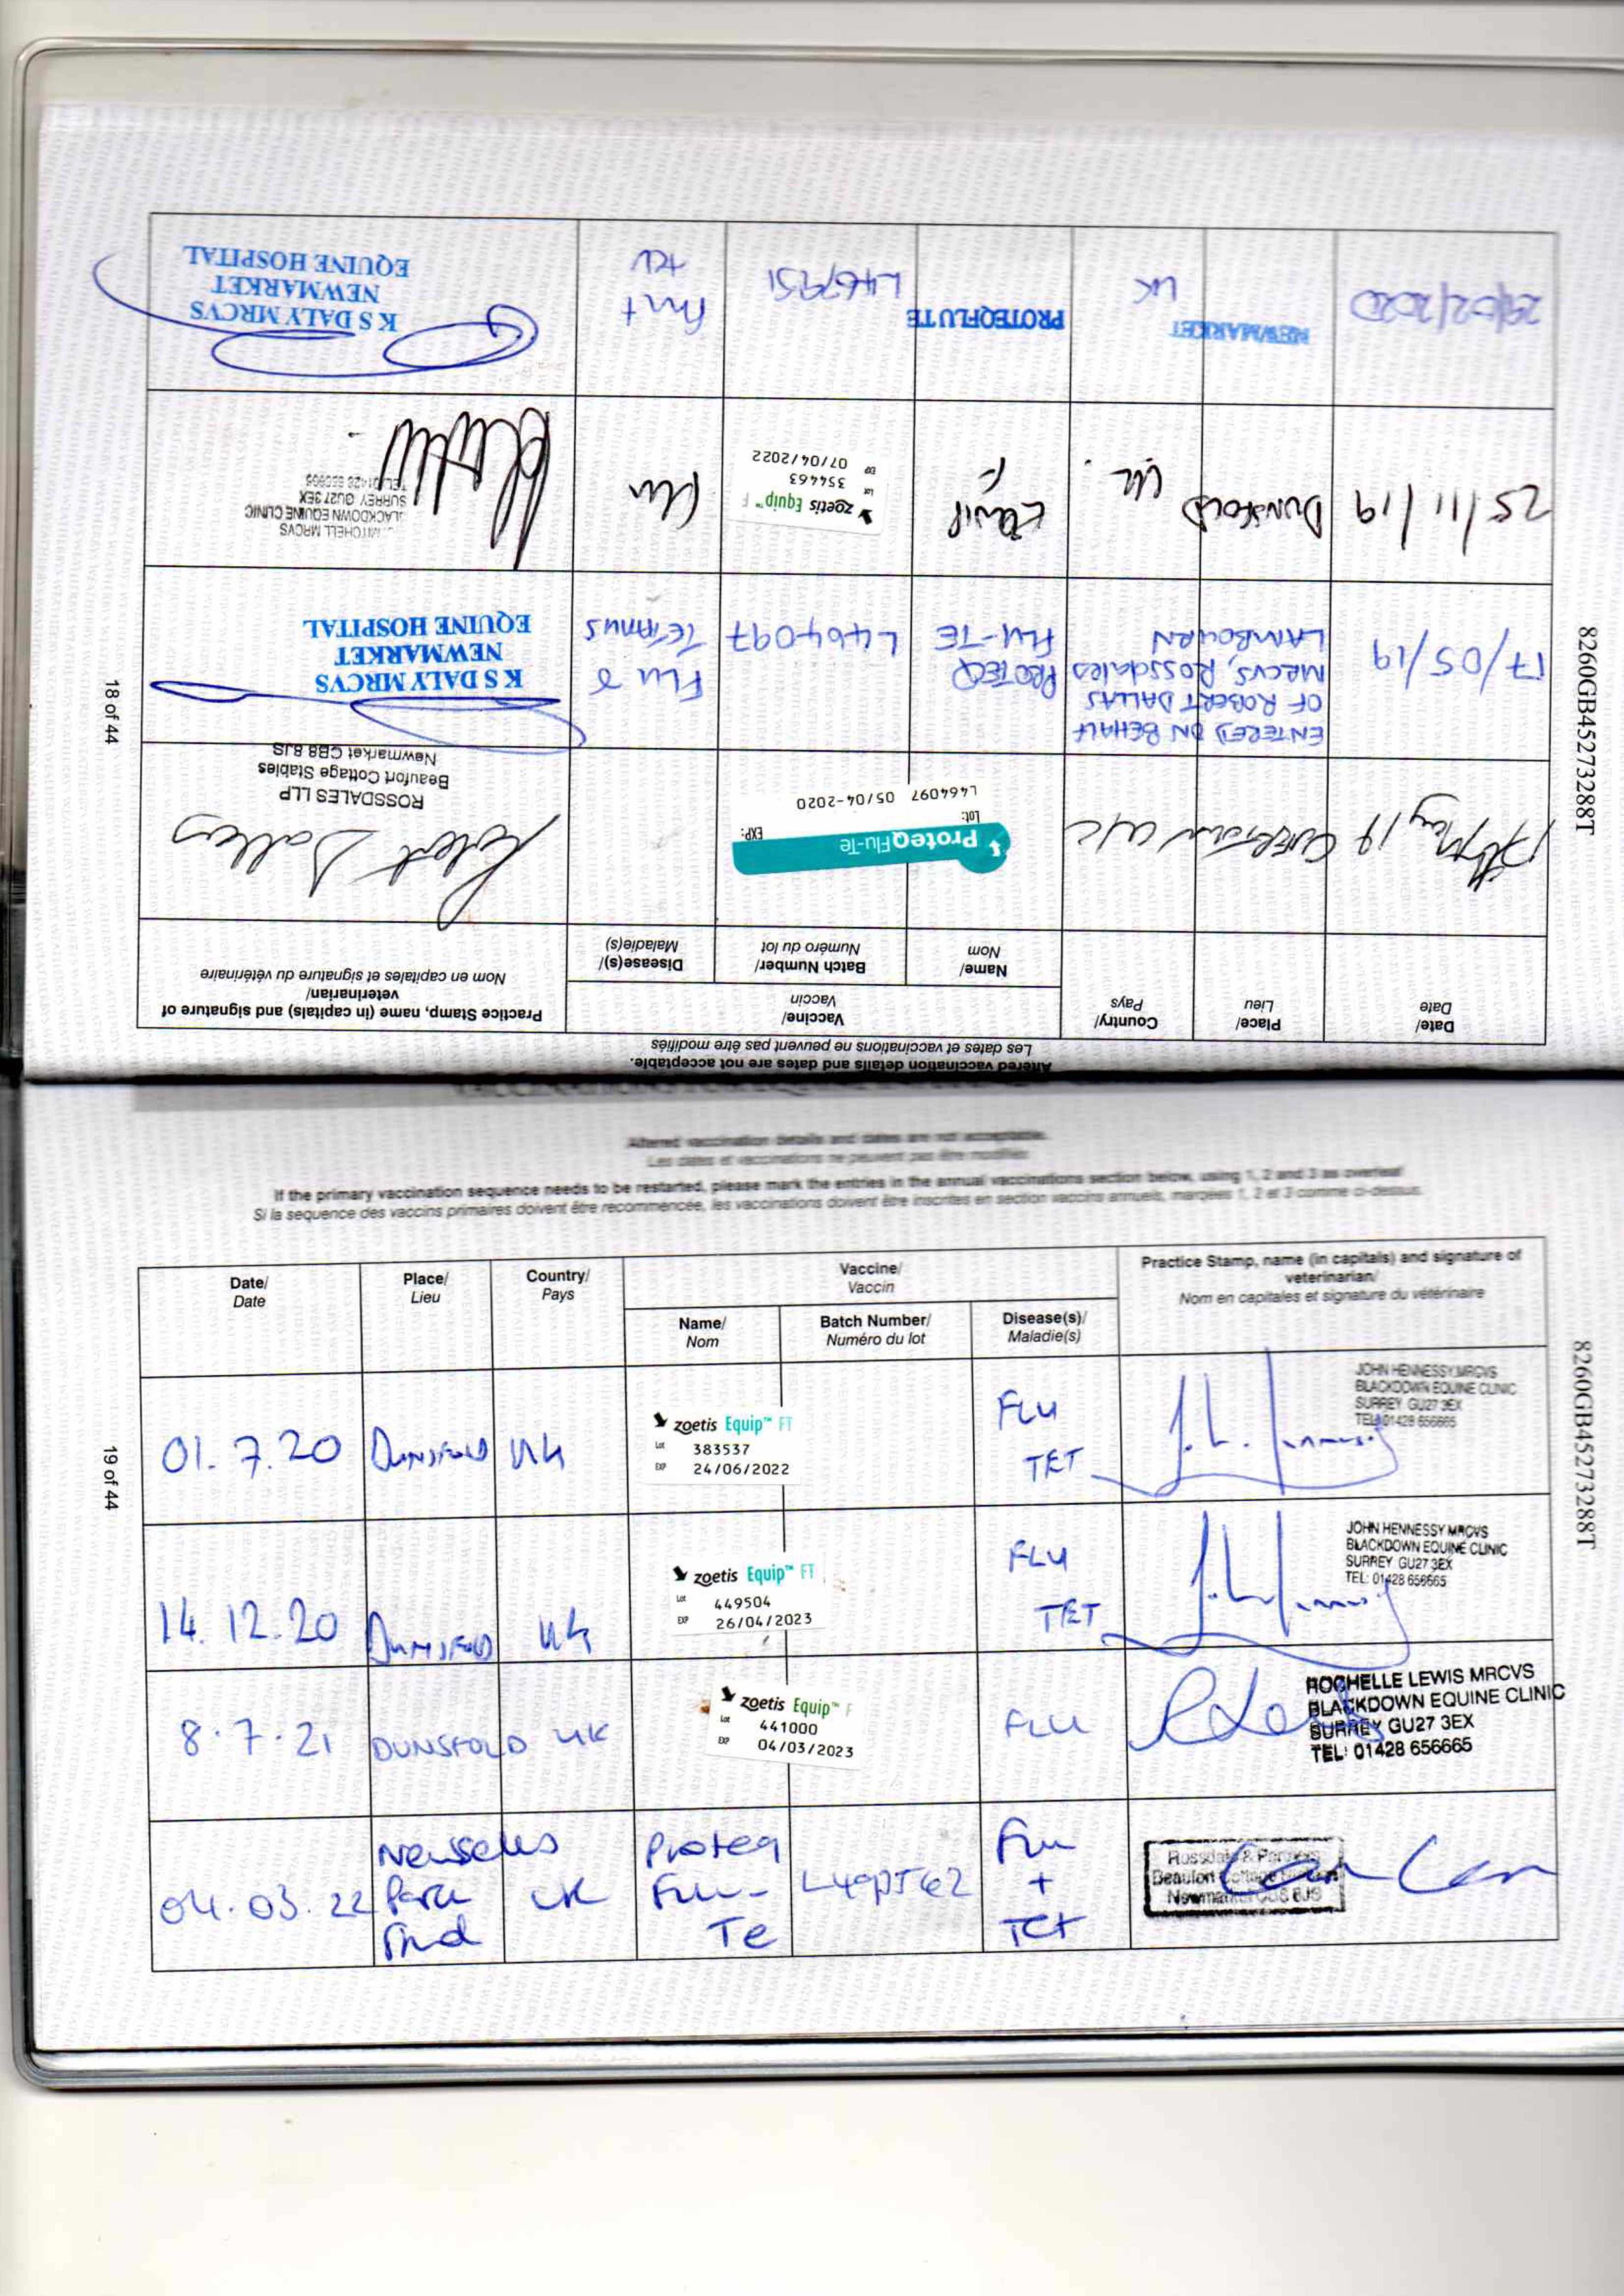 Altered vaccination details and dates are not acceptable.
Les dates et vaccinations ne peuvent pas être modifiés
Date/
Date
Place/
Lieu
Country/
Pays
Vaccine/
Vaccin
Name/
Nom
Batch Number/
Numéro du lot
Disease(s)/
Maladie(s)
Practice Stamp, name (in capitals) and signature of
veterinarian/
Nom en capitales et signature du vétérinaire
17th May 19
UK
ProteqFlu-Te
Lot:
EXP:
L464097 05/04-2020
Robert Dallas
ROSSDALES LLP
Beaufort Cottage Stables
Newmarket CB8 8JS
17/05/19
ENTERED ON BEHALF
OF ROBERT DALLAS
MRCVS, ROSSDALES
LAMBOURN
PROTEQ
FLU-TE
L464097
FLU &
TETANUS
K S DALY MRCVS
NEWMARKET
EQUINE HOSPITAL
25/11/19
DUNSFOLD
UK.
EQUIP
F
zoetis Equip™ F
Lot 354463
EXP 07/04/2022
Flu
MITCHELL MRCVS
BLACKDOWN EQUINE CLINIC
SURREY GU27 3EX
NEWMARKET
UK
PROTEQFLUTE
K S DALY MRCVS
NEWMARKET
EQUINE HOSPITAL
18 of 44
8260GB45273288T
Altered vaccination details and dates are not acceptable.
Les dates et vaccinations ne peuvent pas être modifiés
If the primary vaccination sequence needs to be restarted, please mark the entries in the annual vaccinations section below, using 1, 2 and 3 as overleaf
Si la sequence des vaccins primaires doivent être recommencée, les vaccinations doivent être inscrites en section vaccins annuels, marqées 1, 2 et 3 comme ci-dessus.
Date/
Date
Place/
Lieu
Country/
Pays
Vaccine/
Vaccin
Name/
Nom
Batch Number/
Numéro du lot
Disease(s)/
Maladie(s)
Practice Stamp, name (in capitals) and signature of
veterinarian/
Nom en capitales et signature du vétérinaire
01.7.20
DUNSFOLD
UK
zoetis Equip™ FT
Lot 383537
EXP 24/06/2022
FLU
TET
JOHN HENNESSY MRCVS
BLACKDOWN EQUINE CLINIC
SURREY GU27 3EX
TEL: 01428 656665
14.12.20
DUNSFOLD
UK
zoetis Equip™ FT
Lot 449504
EXP 26/04/2023
FLU
TET
JOHN HENNESSY MRCVS
BLACKDOWN EQUINE CLINIC
SURREY GU27 3EX
TEL: 01428 656665
8.7.21
DUNSFOLD
UK
zoetis Equip™ F
Lot 441000
EXP 04/03/2023
FLU
ROCHELLE LEWIS MRCVS
BLACKDOWN EQUINE CLINIC
SURREY GU27 3EX
TEL: 01428 656665
04.03.22
Newsells
Park
Stud
UK
Proteq
Flu-
Te
Flu
+
Tet
Rossdale & Partners
Beaufort Cottage
Newmarket
19 of 44
8260GB45273288T